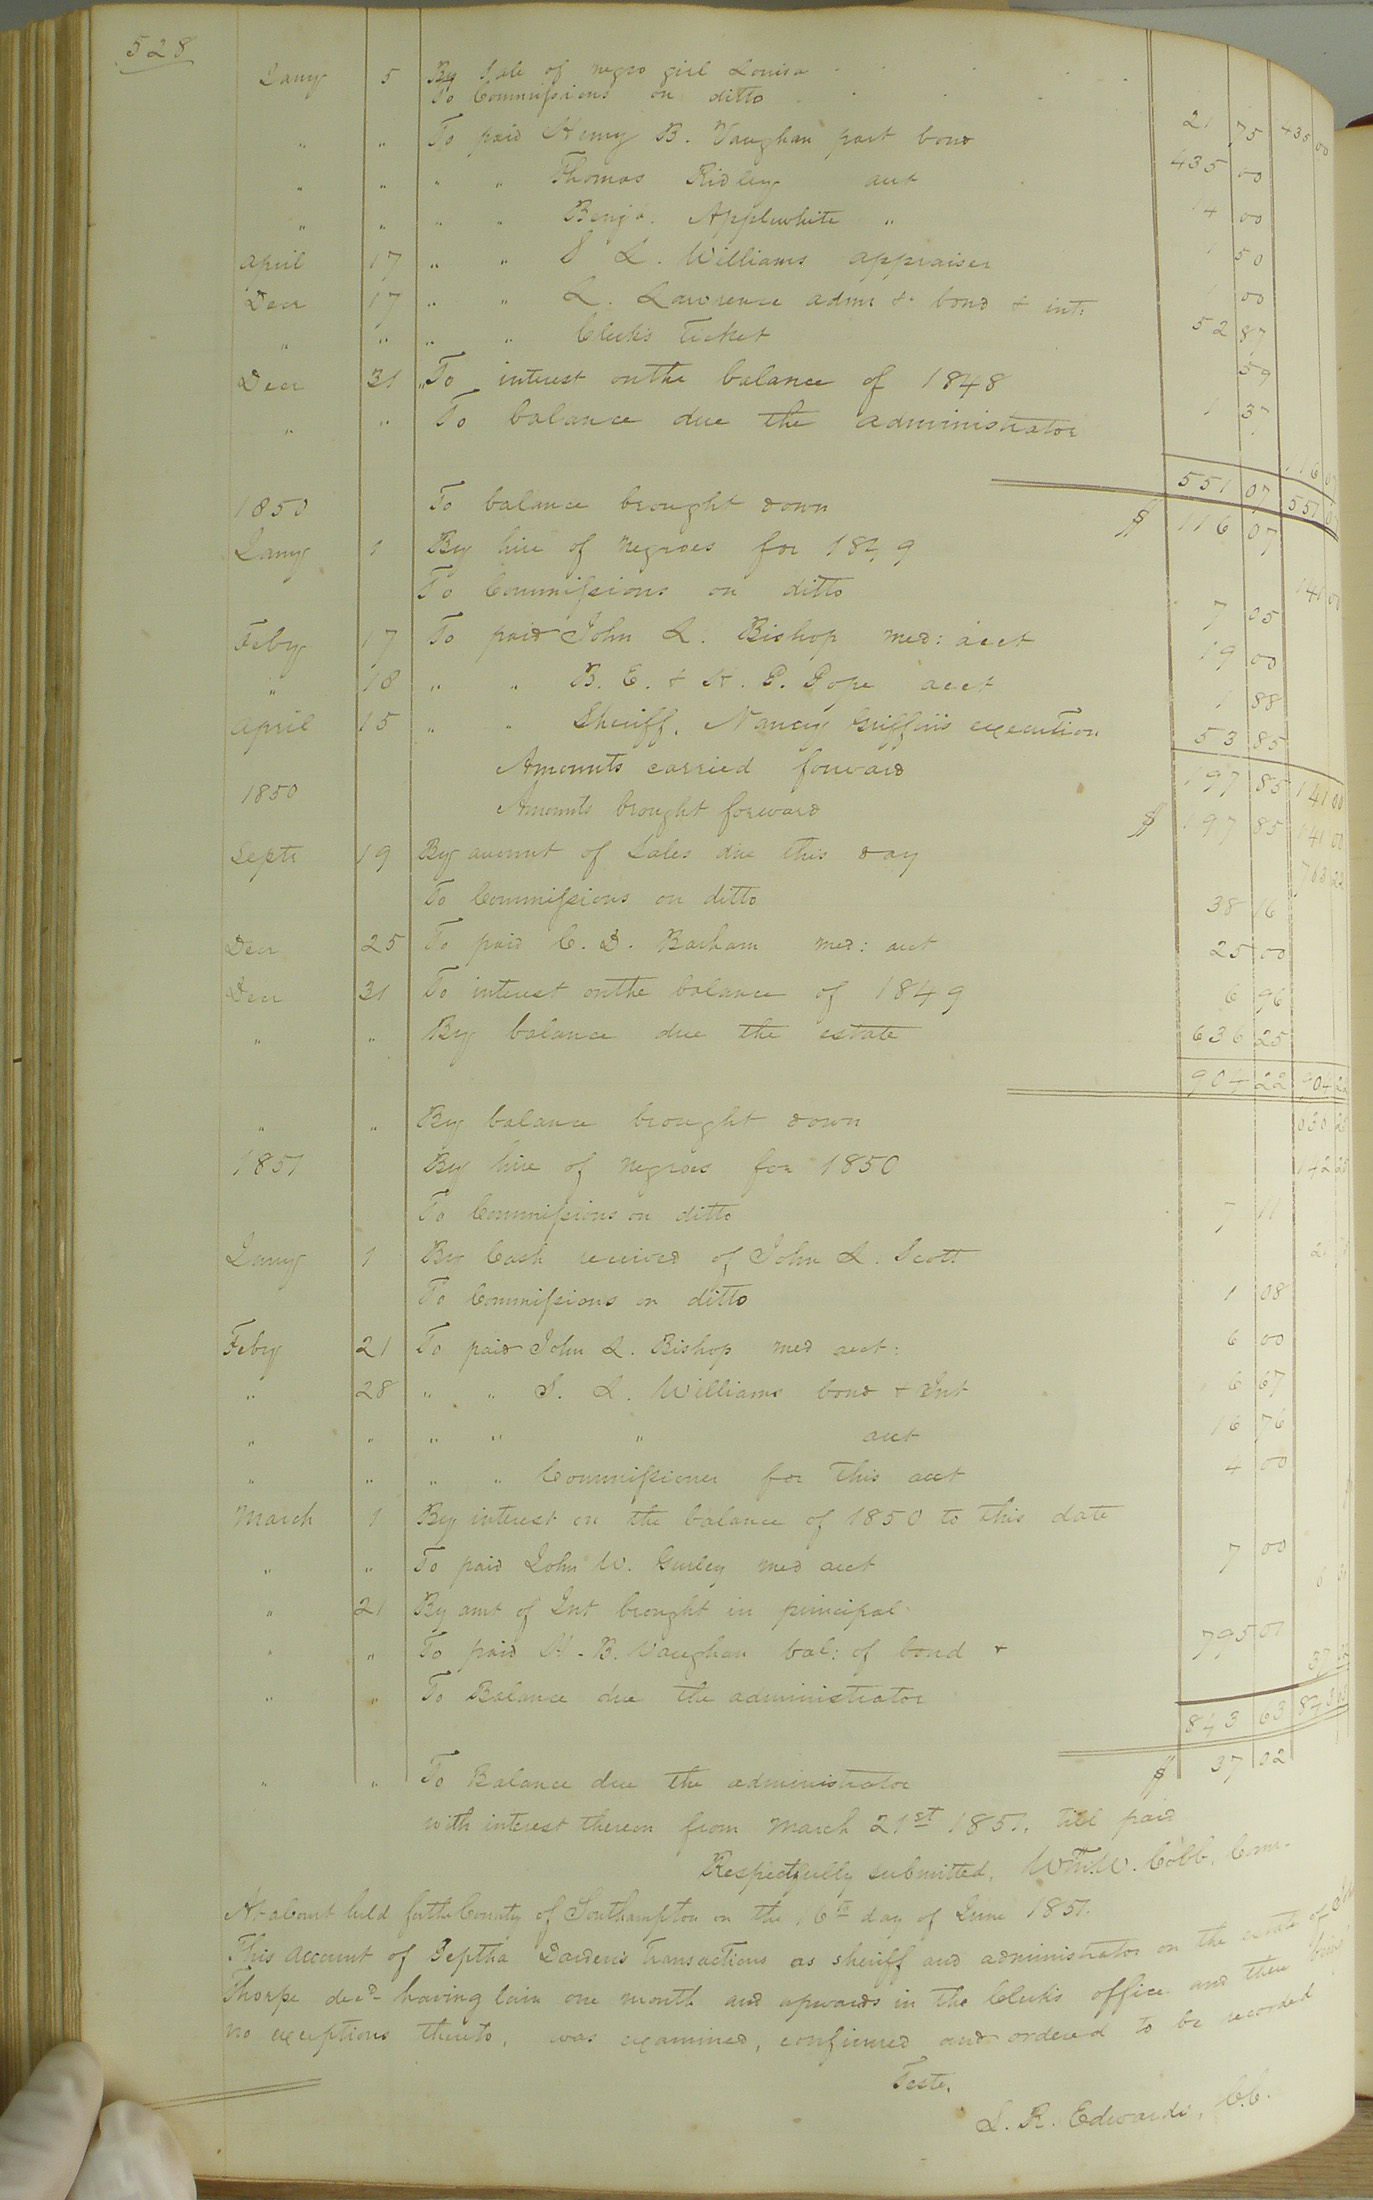 528
Jany 5 By Sale of negro girl Louisa 435 00
To Commissions on ditto 21 75
" " To paid Henry B. Vaughan part bond 435 00
" " " " Thomas Ridley acct 00
" " " " Benja. Applewhite " 1 50
April 17 " " L. Williams appraiser 00
Decr 17 " " L. Lawrence admr &c bond & int: 52 87
" " " " Clerks Ticket 59
Decr 31 " To interest on the balance of 1848 1 37
" " To balance due the administrator 116 07
551 07 551 07
1850 To balance brought down $ 116 07
Jany 1 By hire of negroes for 1849 141 00
To Commissions on ditto 7 05
Feby 17 To paid John L. Bishop med: acct 19 00
" 18 " " B. E. & H. G. Pope acct 1 88
April 15 " " Sheriff, Nancy Griffin's execution 53 85
Amounts carried forward 197 85 141 00
1850 Amounts brought forward $ 197 85 141 00
Septr 19 By amount of Sales due this day 763 22
To Commissions on ditto 38 16
Decr 25 To paid C. D. Barham med: acct 25 00
Decr 31 To interest on the balance of 1849 6 96
" " By balance due the estate 636 25
904 22 904 22
" " By balance brought down 25
1851 By hire of negroes for 1850 142 25
To Commissions on ditto 7 11
Jany 1 By Cash received of John L. Scott 21
To Commissions on ditto 1 08
Feby 21 To paid John L. Bishop med acct: 6 00
" 28 " " L. Williams bond & Int 6 67
" " " " " acct 16 76
" " " " Commissioner for this acct 4 00
March 1 By interest on the balance of 1850 to this date
" " To paid John W. Gurley med acct 7 00
" 21 By amt of Int brought in principal
" " To paid H. B. Vaughan bal: of bond & 795 01
" " To Balance due the administrator 37 02
843 63 843 63
" " To Balance due the administrator $ 37 02
with interest thereon from March 21st 1851, till paid
Respectfully submitted, Wm. W. Cobb, Comr.
At a Court held for the County of Southampton on the 16th day of June 1851.
This account of Jeptha Darden's Transactions as sheriff and administrator on the estate of
Thorpe decd having lain one month and upwards in the Clerks office and there being
no exceptions thereto, was examined, confirmed and ordered to be recorded
Teste,
L. R. Edwards, C.C.